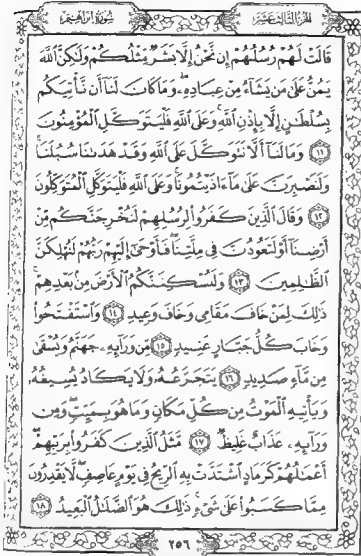 سُورَةُ إِبْرَاهِيمَ
الجُزْءُ الثَّالِثَ عَشَرَ
قَالَتْ لَهُمْ رُسُلُهُمْ إِن نَّحْنُ إِلَّا بَشَرٌ مِّثْلُكُمْ وَلَٰكِنَّ ٱللَّهَ
يَمُنُّ عَلَىٰ مَن يَشَآءُ مِنْ عِبَادِهِۦ ۖ وَمَا كَانَ لَنَآ أَن نَّأْتِيَكُم
بِسُلْطَٰنٍ إِلَّا بِإِذْنِ ٱللَّهِ ۚ وَعَلَى ٱللَّهِ فَلْيَتَوَكَّلِ ٱلْمُؤْمِنُونَ
﴿١١﴾ وَمَا لَنَآ أَلَّا نَتَوَكَّلَ عَلَى ٱللَّهِ وَقَدْ هَدَىٰنَا سُبُلَنَا ۚ
وَلَنَصْبِرَنَّ عَلَىٰ مَآ ءَاذَيْتُمُونَا ۚ وَعَلَى ٱللَّهِ فَلْيَتَوَكَّلِ ٱلْمُتَوَكِّلُونَ
﴿١٢﴾ وَقَالَ ٱلَّذِينَ كَفَرُوا۟ لِرُسُلِهِمْ لَنُخْرِجَنَّكُم مِّنْ
أَرْضِنَآ أَوْ لَتَعُودُنَّ فِى مِلَّتِنَا ۖ فَأَوْحَىٰٓ إِلَيْهِمْ رَبُّهُمْ لَنُهْلِكَنَّ
ٱلظَّٰلِمِينَ ﴿١٣﴾ وَلَنُسْكِنَنَّكُمُ ٱلْأَرْضَ مِنۢ بَعْدِهِمْ ۚ
ذَٰلِكَ لِمَنْ خَافَ مَقَامِى وَخَافَ وَعِيدِ ﴿١٤﴾ وَٱسْتَفْتَحُوا۟
وَخَابَ كُلُّ جَبَّارٍ عَنِيدٍ ﴿١٥﴾ مِّن وَرَآئِهِۦ جَهَنَّمُ وَيُسْقَىٰ
مِن مَّآءٍ صَدِيدٍ ﴿١٦﴾ يَتَجَرَّعُهُۥ وَلَا يَكَادُ يُسِيغُهُۥ
وَيَأْتِيهِ ٱلْمَوْتُ مِن كُلِّ مَكَانٍ وَمَا هُوَ بِمَيِّتٍ ۖ وَمِن
وَرَآئِهِۦ عَذَابٌ غَلِيظٌ ﴿١٧﴾ مَّثَلُ ٱلَّذِينَ كَفَرُوا۟ بِرَبِّهِمْ ۖ
أَعْمَٰلُهُمْ كَرَمَادٍ ٱشْتَدَّتْ بِهِ ٱلرِّيحُ فِى يَوْمٍ عَاصِفٍ ۖ لَّا يَقْدِرُونَ
مِمَّا كَسَبُوا۟ عَلَىٰ شَىْءٍ ۚ ذَٰلِكَ هُوَ ٱلضَّلَٰلُ ٱلْبَعِيدُ ﴿١٨﴾
٢٥٦